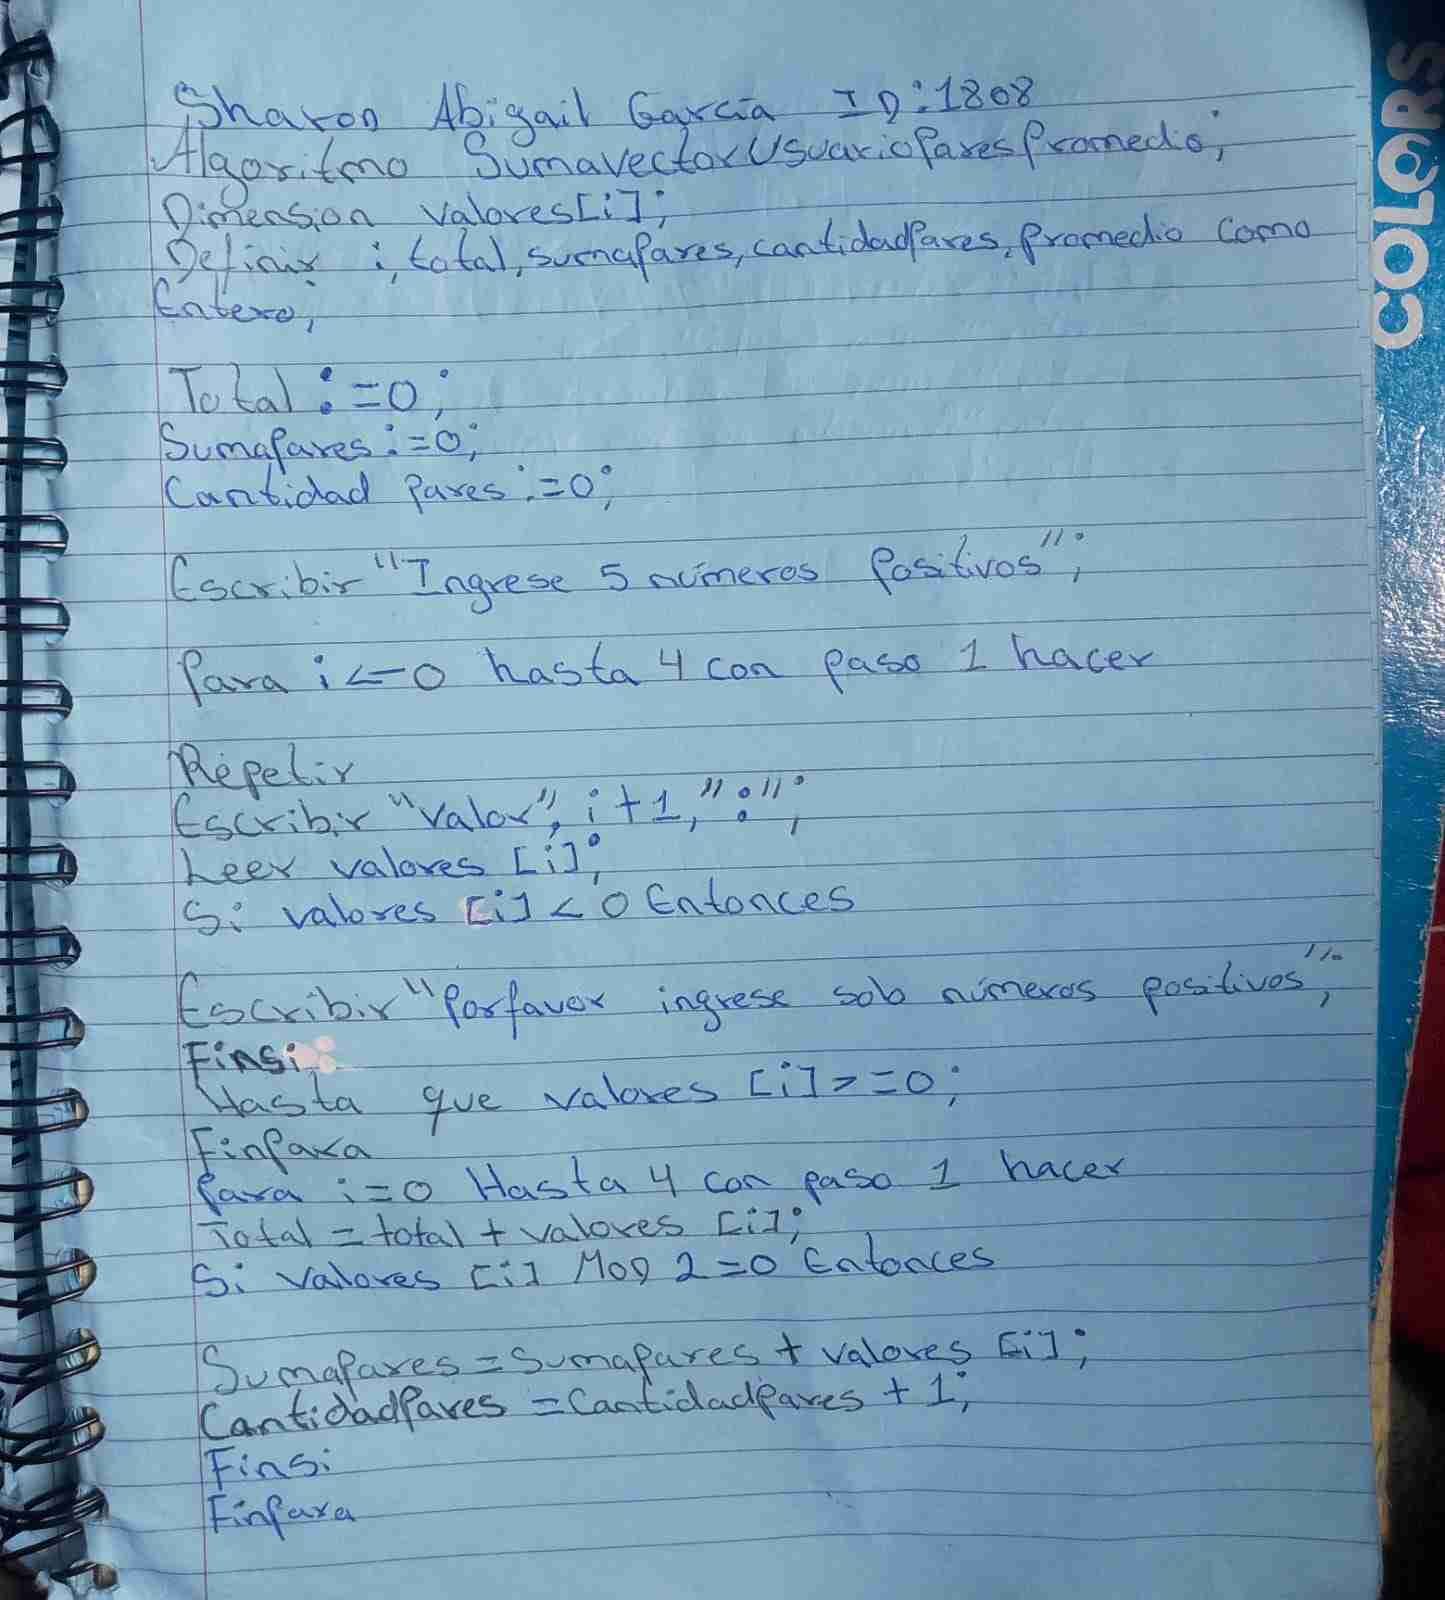 Sharon Abigail García ID:1808
Algoritmo SumavectorUsuarioParesPromedio;
Dimension valores[i];
Definir i, total, sumaPares, cantidadPares, Promedio Como
Entero;
Total := 0;
SumaPares := 0;
Cantidad Pares := 0;
Escribir "Ingrese 5 números Positivos";
Para i <- 0 hasta 4 con paso 1 hacer
Repetir
Escribir "valor", i+1, ":";
Leer valores [i];
Si valores [i] < 0 Entonces
Escribir "Porfavor ingrese solo números positivos";
Finsi
Hasta que valores [i] >= 0;
FinPara
Para i = 0 Hasta 4 con paso 1 hacer
Total = total + valores [i];
Si valores [i] MOD 2 = 0 Entonces
SumaPares = SumaPares + valores [i];
CantidadPares = CantidadPares + 1;
Finsi
FinPara
COLORS